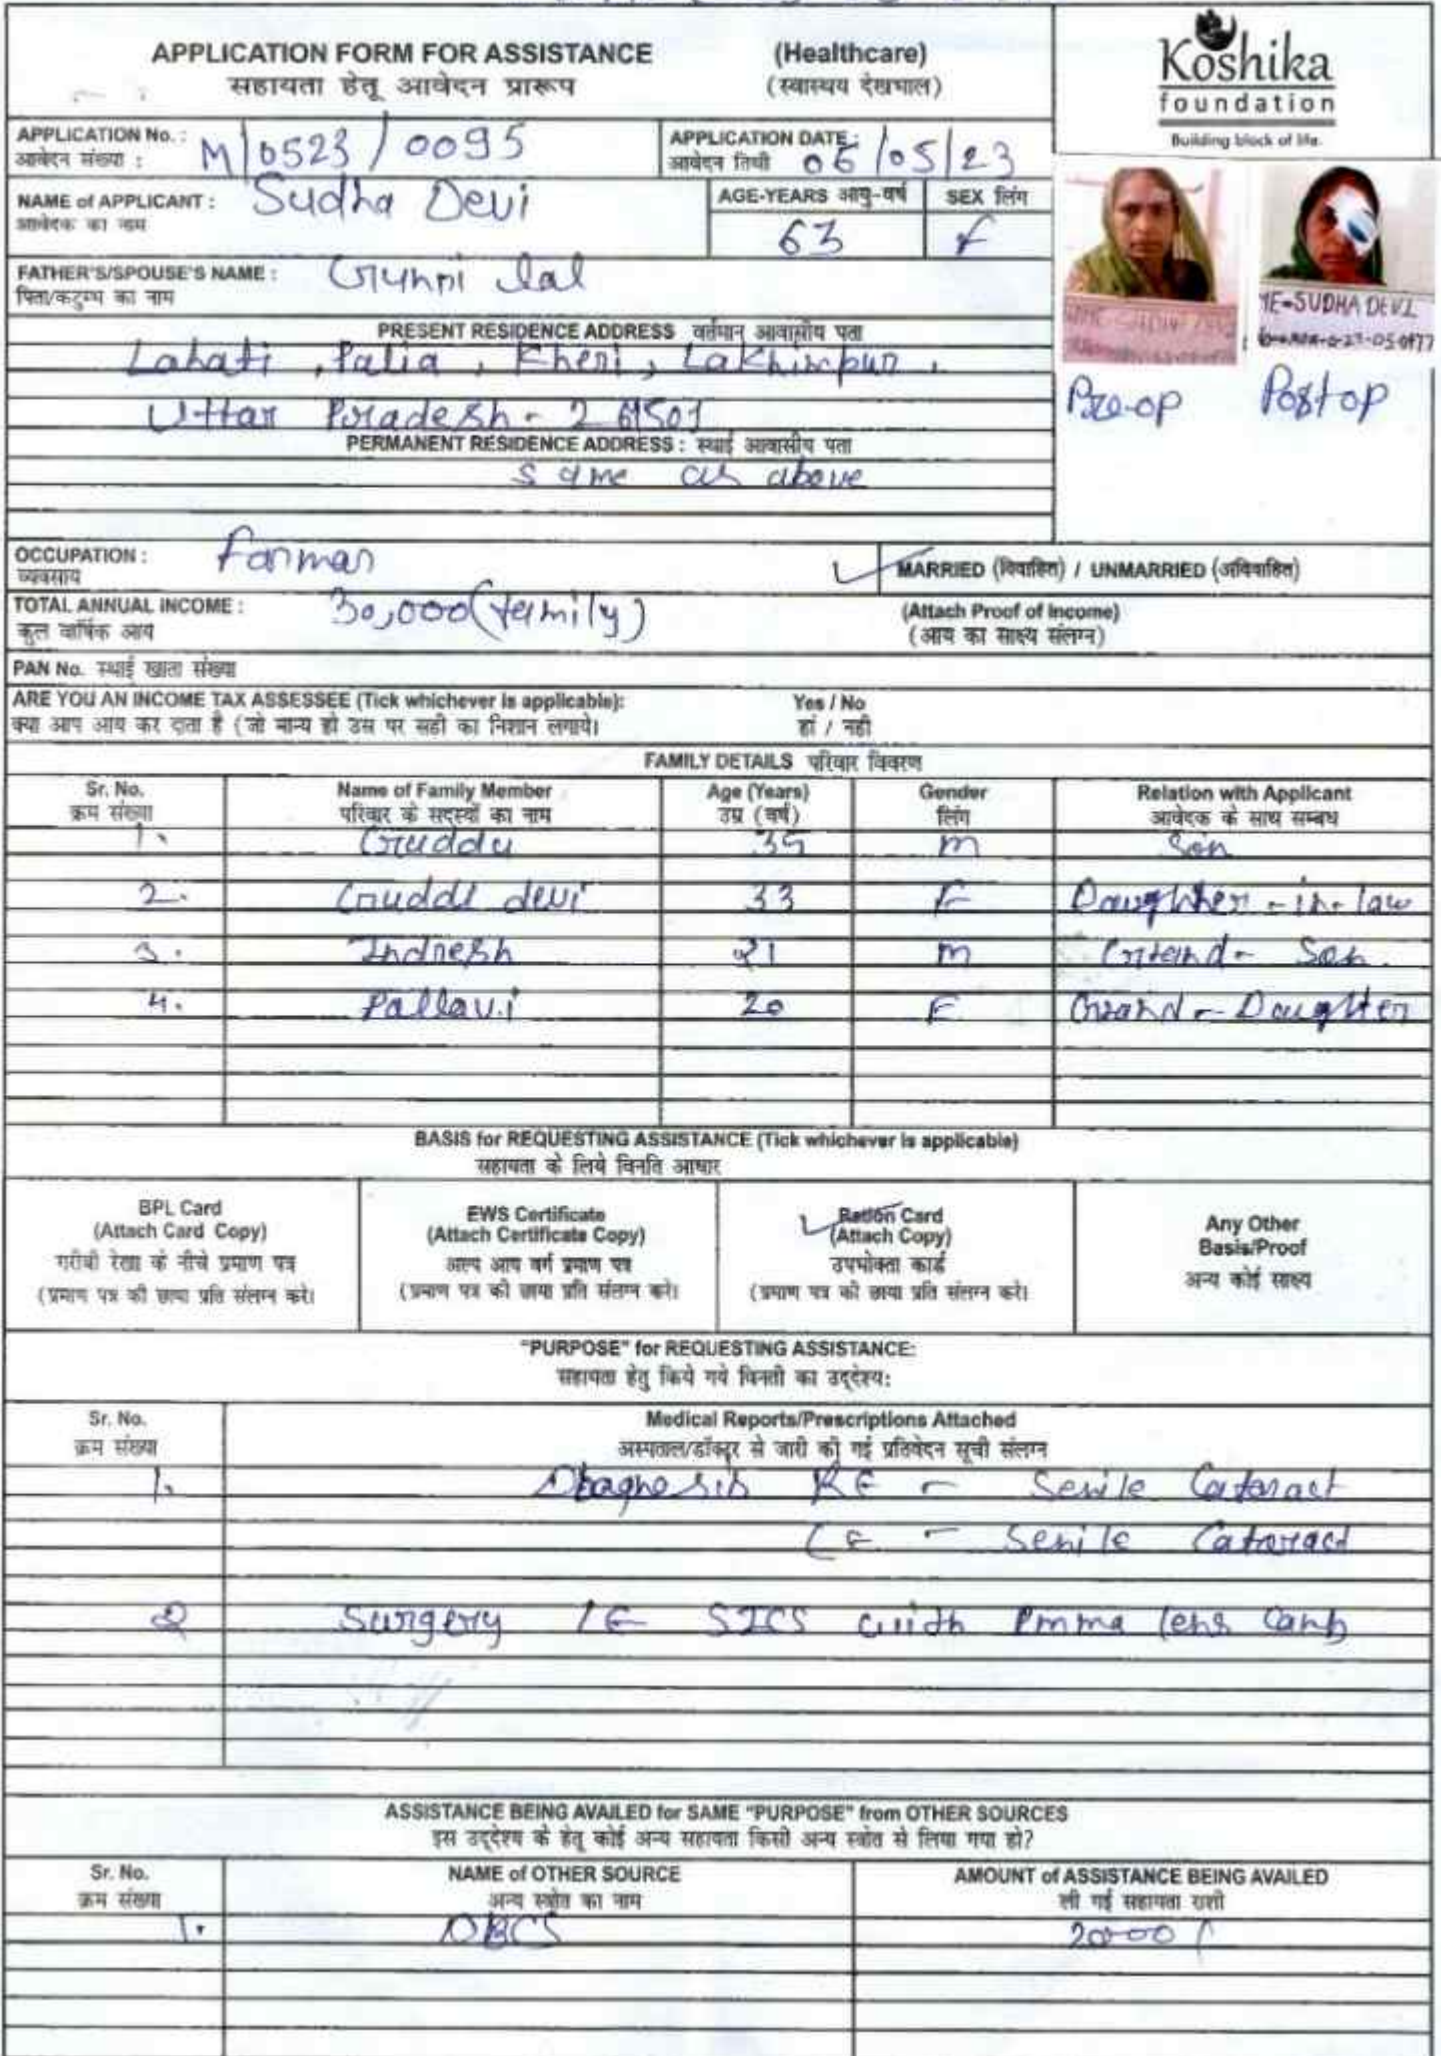 APPLICATION FORM FOR ASSISTANCE (Healthcare)
सहायता हेतू आवेदन प्रारूप (स्वास्थय देखभाल)
Koshika
foundation
Building block of life.
APPLICATION No. : M/0523/0095
आवेदन संख्या :
APPLICATION DATE : 06/05/23
आवेदन तिथी
NAME of APPLICANT : Sudha Devi
आवेदक का नाम
AGE-YEARS आयु-वर्ष SEX लिंग
63 F
FATHER'S/SPOUSE'S NAME : Gunni lal
पिता/कटुम्ब का नाम
PRESENT RESIDENCE ADDRESS वर्तमान आवासीय पता
Lahati, Palia, Kheri, Lakhimpur,
Uttar Pradesh -
PERMANENT RESIDENCE ADDRESS : स्थाई आवासीय पता
same as above
ME-SUDHA DEVI
Pre-op Postop
OCCUPATION : Farmar
व्यवसाय
MARRIED (विवाहित) / UNMARRIED (अविवाहित)
TOTAL ANNUAL INCOME : 30,000 (family)
कुल वार्षिक आय
(Attach Proof of Income)
(आय का साक्ष्य संलग्न)
PAN No. स्थाई खाता संख्या
ARE YOU AN INCOME TAX ASSESSEE (Tick whichever is applicable): Yes / No
क्या आप आय कर दाता है (जो मान्य हो उस पर सही का निशान लगाये। हां / नही
FAMILY DETAILS परिवार विवरण
Sr. No. Name of Family Member Age (Years) Gender Relation with Applicant
क्रम संख्या परिवार के सदस्यों का नाम उम्र (वर्ष) लिंग आवेदक के साथ सम्बध
1. Guddu 35 M Son
2. Guddi devi 33 F Daughter-in-law
3. Indresh 21 M Grand-Son
4. Pallavi 20 F Grand-Daughter
BASIS for REQUESTING ASSISTANCE (Tick whichever is applicable)
सहायता के लिये विनति आधार
BPL Card
(Attach Card Copy)
गरीबी रेखा के नीचे प्रमाण पत्र
(प्रमाण पत्र की छाया प्रति संलग्न करे।
EWS Certificate
(Attach Certificate Copy)
अल्प आय वर्ग प्रमाण पत्र
(प्रमाण पत्र की छाया प्रति संलग्न करे।
Ration Card
(Attach Copy)
उपभोक्ता कार्ड
(प्रमाण पत्र की छाया प्रति संलग्न करे।
Any Other
Basis/Proof
अन्य कोई साक्ष्य
"PURPOSE" for REQUESTING ASSISTANCE:
सहायता हेतु किये गये विनती का उद्देश्य:
Sr. No. Medical Reports/Prescriptions Attached
क्रम संख्या अस्पताल/डॉक्टर से जारी की गई प्रतिवेदन सूची संलग्न
1. Diagnosis RE - Senile Cataract
LE - Senile Cataract
2 Surgery LE SICS with Pmma lens
ASSISTANCE BEING AVAILED for SAME "PURPOSE" from OTHER SOURCES
इस उद्देश्य के हेतू कोई अन्य सहायता किसी अन्य स्त्रोत से लिया गया हो?
Sr. No. NAME of OTHER SOURCE AMOUNT of ASSISTANCE BEING AVAILED
क्रम संख्या अन्य स्त्रोत का नाम ली गई सहायता राशी
1. DBCS